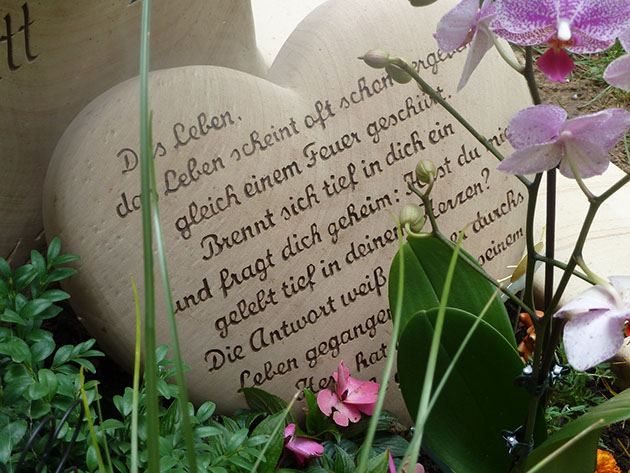 tt
Das Leben,
das Leben scheint oft schon
gleich einem Feuer geschürt.
Brennt sich tief in dich ein
und fragt dich geheim: du nie
gelebt tief in deinem Herzen?
Die Antwort weiß durchs
Leben gegangen seinem
hat